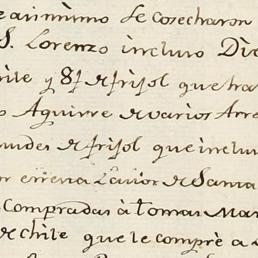 arinimo se cosecharon
S. Lorenzo incluso Die
hile y 8f de frisol que tra
o Aguirre de varios Arre
de frisol que inclui
errena Lavor de Santa
Compradas à tomas Mar
de chile que le comprè a